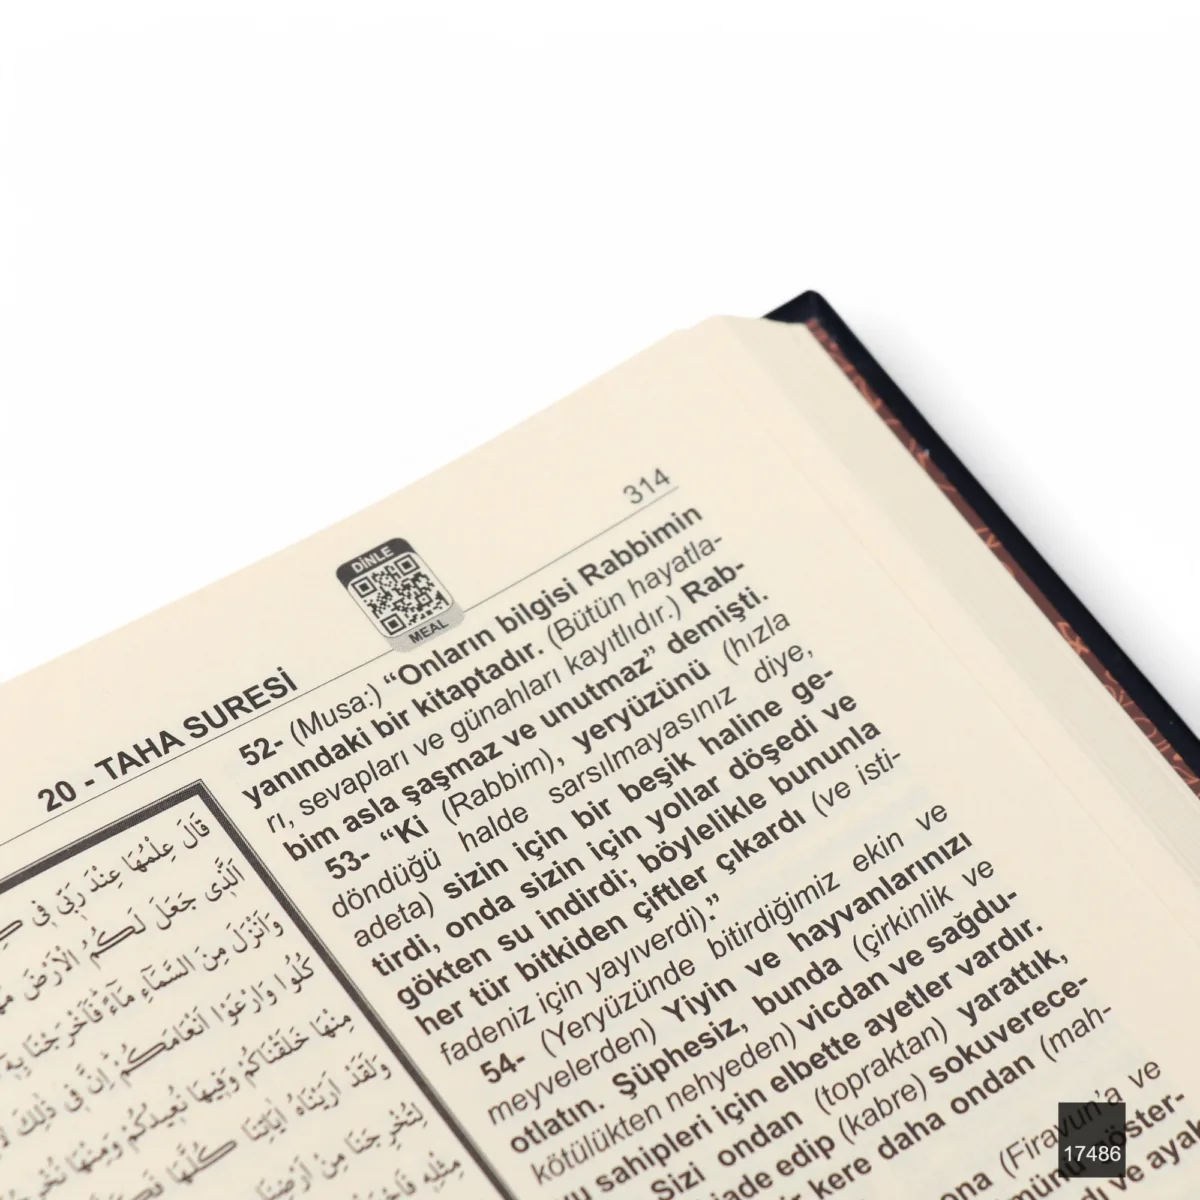 314
DİNLE
MEAL
20 - TAHA SURESİ
52- (Musa:) “Onların bilgisi Rabbimin
yanındaki bir kitaptadır. (Bütün hayatla-
rı, sevapları ve günahları kayıtlıdır.) Rab-
bim asla şaşmaz ve unutmaz” demişti.
53- “Ki (Rabbim), yeryüzünü (hızla
döndüğü halde sarsılmayasınız diye,
adeta) sizin için bir beşik haline ge-
tirdi, onda sizin için yollar döşedi ve
gökten su indirdi; böylelikle bununla
her tür bitkiden çiftler çıkardı (ve isti-
fadeniz için yayıverdi).”
54- (Yeryüzünde bitirdiğimiz ekin ve
meyvelerden) Yiyin ve hayvanlarınızı
otlatın. Şüphesiz, bunda (çirkinlik ve
kötülükten nehyeden) vicdan ve sağdu-
yu sahipleri için elbette ayetler vardır.
Sizi ondan (topraktan) yarattık,
iade edip (kabre) sokuverece-
kere daha ondan (mah-
(Firavun’a ve
ve ayak
قَالَ عِلْمُهَا عِنْدَ رَبّ۪ي ف۪ي
اَلَّذ۪ي جَعَلَ لَكُمُ الْاَرْضَ
وَاَنْزَلَ مِنَ السَّمَٓاءِ مَٓاءً فَاَخْرَجْنَا بِه۪ٓ
كُلُوا وَارْعَوْا اَنْعَامَكُمْ اِنَّ ف۪ي ذٰلِكَ
مِنْهَا خَلَقْنَاكُمْ وَف۪يهَا نُع۪يدُكُمْ وَمِنْهَا
وَلَقَدْ اَرَيْنَاهُ اٰيَاتِنَا كُلَّهَا
لِتُخْرِجَنَا مِنْ
مِثْلِه۪
17486